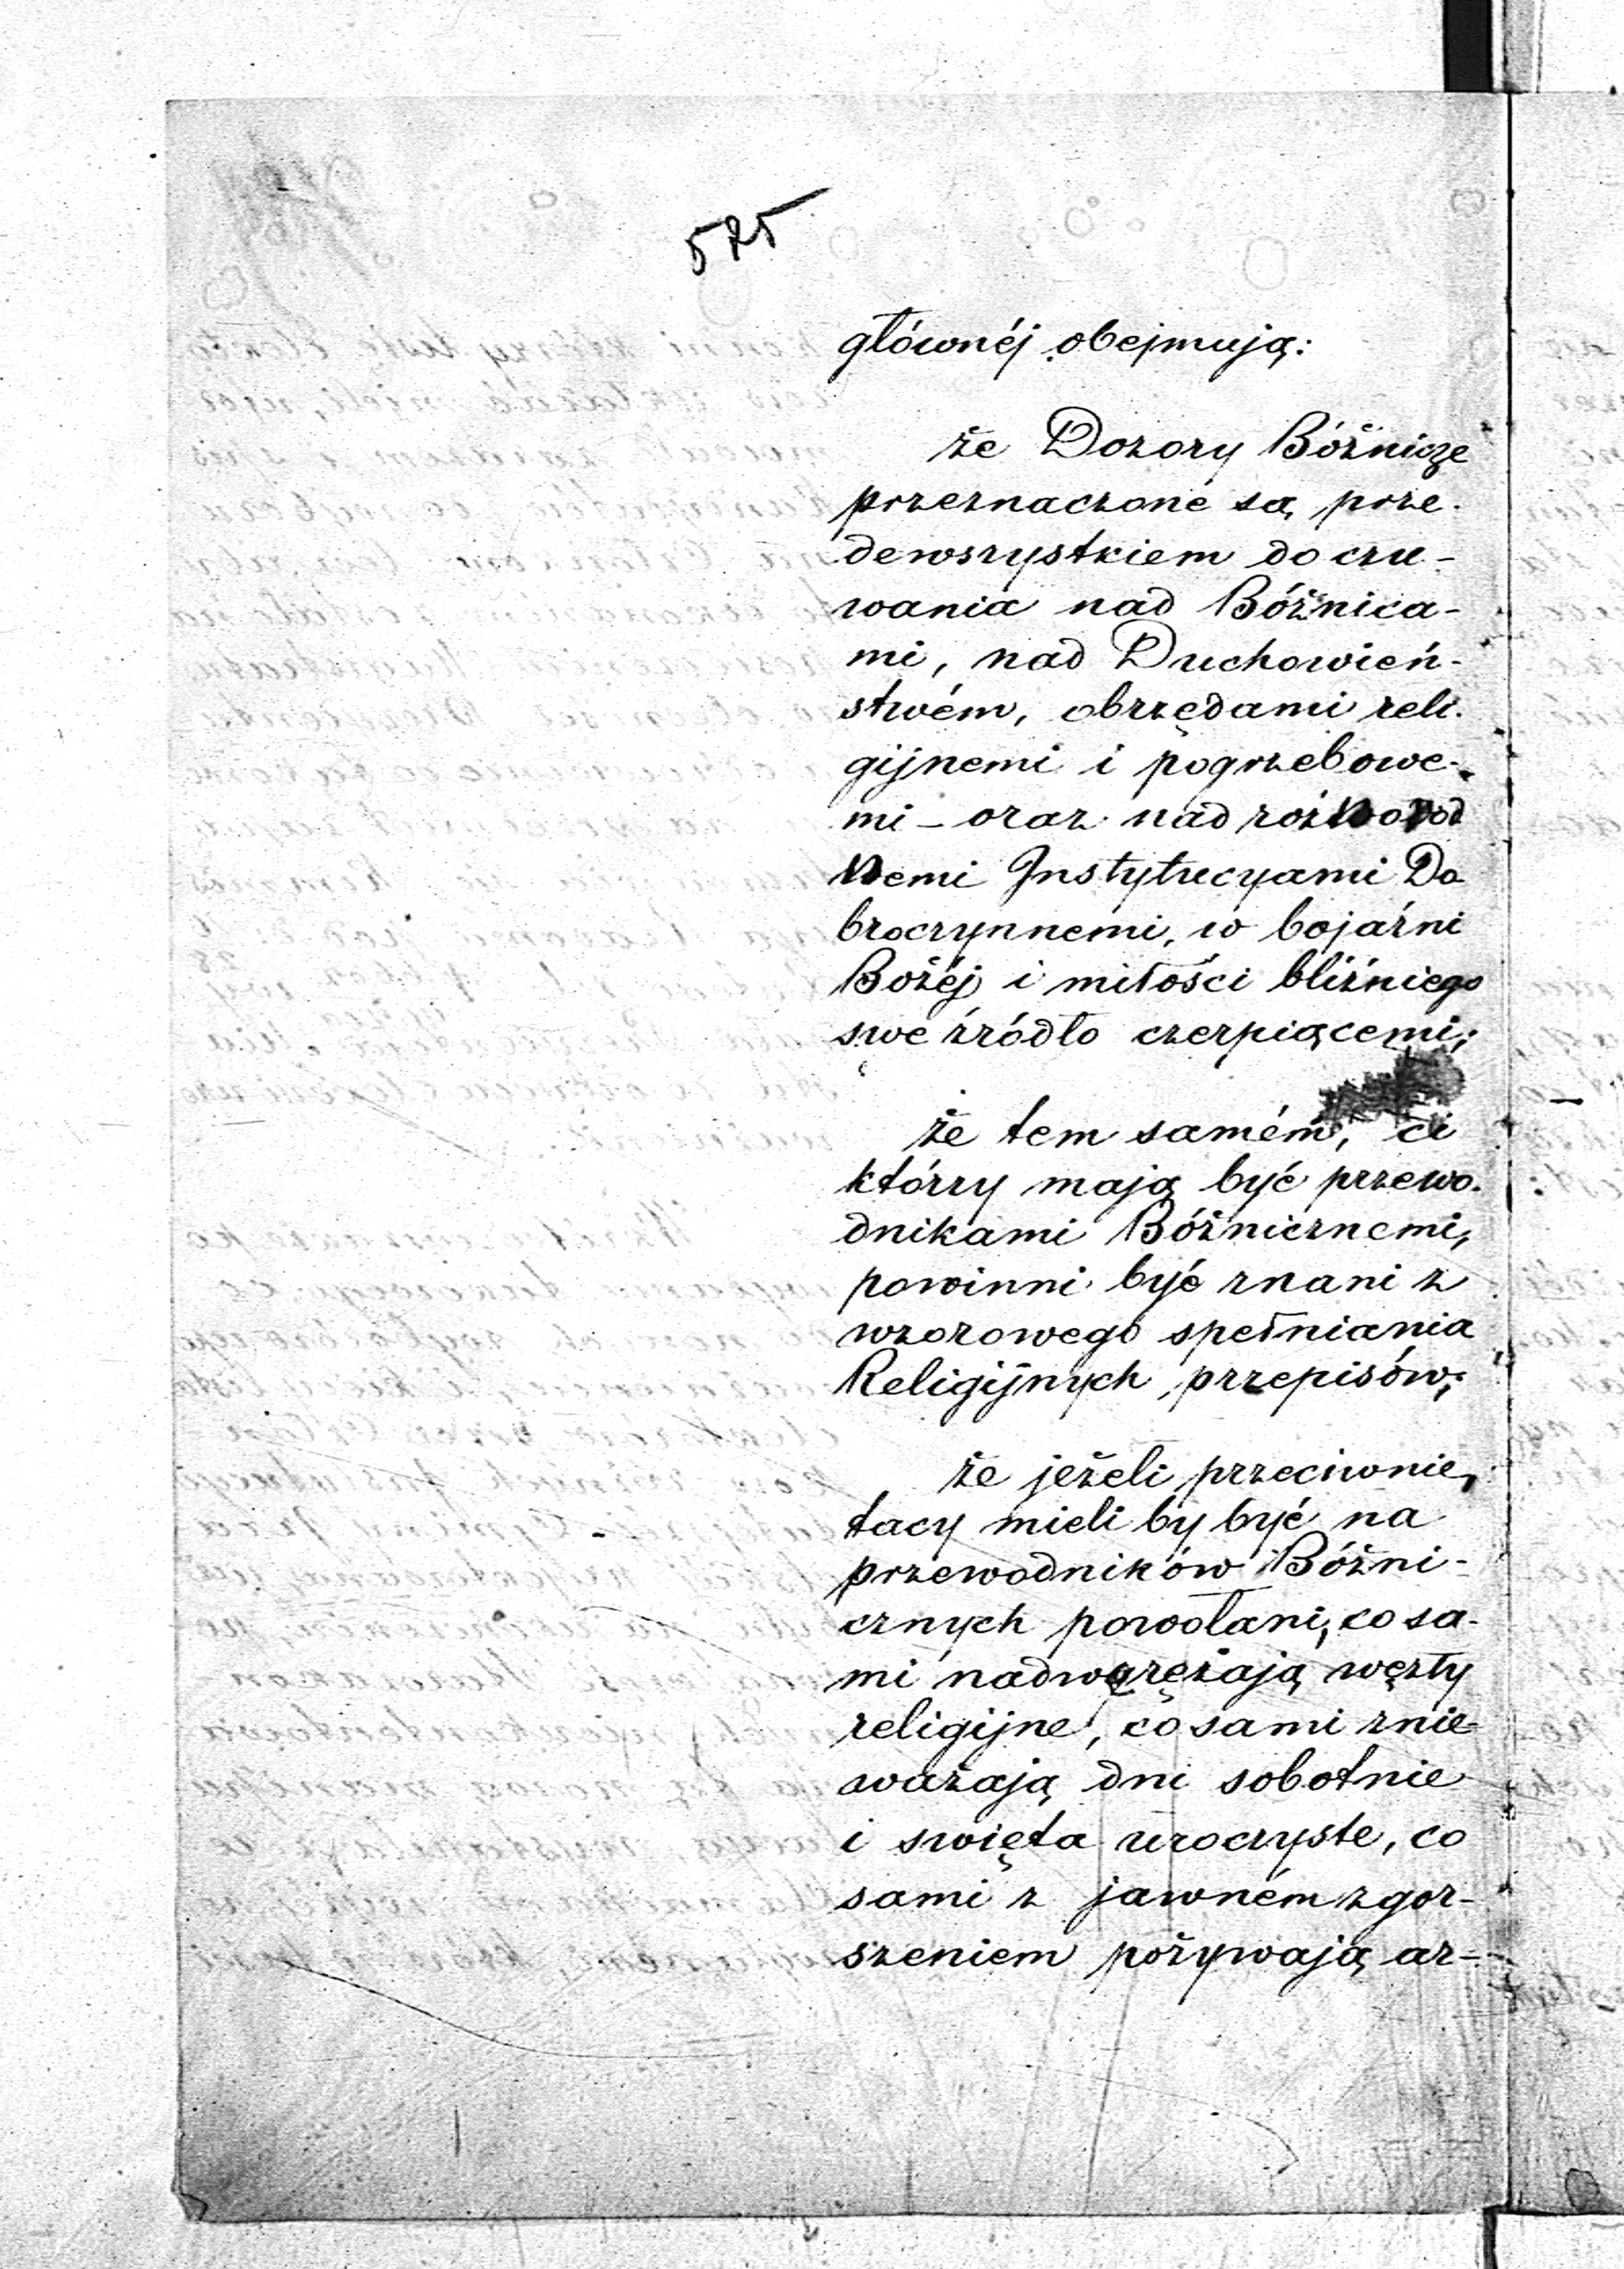 525
głównéj obejmują:
że Dozory Bóżnicze
przeznaczone są prze-
dewszystkiem do czu-
wania nad Bóżnica-
mi, nad Duchowień-
stwém, obrzędami reli-
gijnemi i pogrzebowe-
mi – oraz nad różnorod
nemi Instytucyami Do
broczynnemi, w bojaźni
Bożéj i miłości bliźniego
swe źródło czerpiącemi;
że tem samém, ci
którzy mają być przewo-
dnikami Bóżnicznemi,
powinni być znani z
wzorowego spełniania
Religijnych przepisów;
że jeżeli przeciwnie,
tacy mieli by być na
przewodników Bóżni-
cznych powołani, co sa-
mi nadwąrężają węzły
religijne, co sami znie-
ważają dni sobotnie
i święta uroczyste, co
sami z jawném zgor-
szeniem pożywają ar-